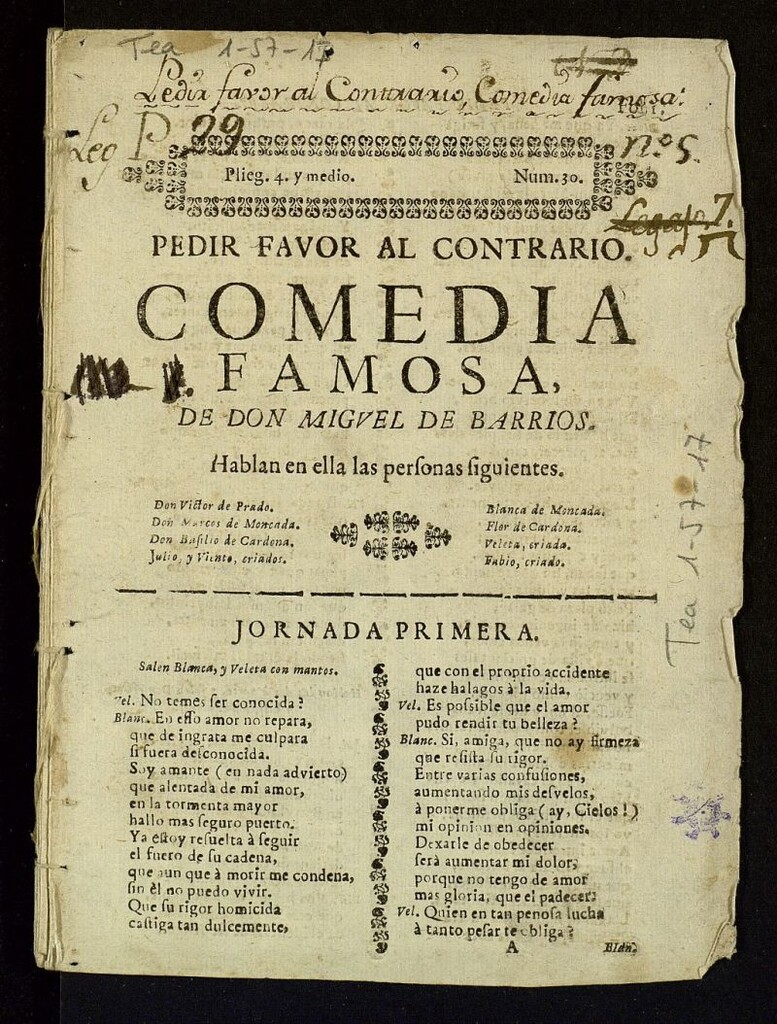 Tea 1-57-17
Pedir favor al Contrario, Comedia famosa.
Leg P. 29
nº 5.
Plieg. 4. y medio. Num. 30.
Legajo 7.
PEDIR FAVOR AL CONTRARIO.
COMEDIA
FAMOSA,
DE DON MIGVEL DE BARRIOS.
Hablan en ella las perſonas ſiguientes.
Don Victor de Prado.
Don Marcos de Moncada.
Don Baſilio de Cardona.
Julio, y Viento, criados.
Blanca de Moncada.
Flor de Cardona.
Veleta, criada.
Fabio, criado.
Tea 1-57-17
JORNADA PRIMERA.
Salen Blanca, y Veleta con mantos.
Vel. No temes ſer conocida?
Blanc. En eſſo amor no repara,
que de ingrata me culpara
ſi fuera deſconocida.
Soy amante (en nada advierto)
que alentada de mi amor,
en la tormenta mayor
hallo mas ſeguro puerto.
Ya eſtoy reſuelta à ſeguir
el fuero de ſu cadena,
que aun que à morir me condena,
ſin èl no puedo vivir.
Que ſu rigor homicida
caſtiga tan dulcemente,
que con el proprio accidente
haze halagos à la vida.
Vel. Es poſsible que el amor
pudo rendir tu belleza?
Blanc. Si, amiga, que no ay firmeza
que reſiſta ſu rigor.
Entre varias confuſiones,
aumentando mis deſvelos,
à ponerme obliga (ay, Cielos!)
mi opinion en opiniones.
Dexarle de obedecer
ſerà aumentar mi dolor,
porque no tengo de amor
mas gloria, que el padecer.
Vel. Quien en tan penoſa lucha
à tanto peſar te obliga?
A Blan.